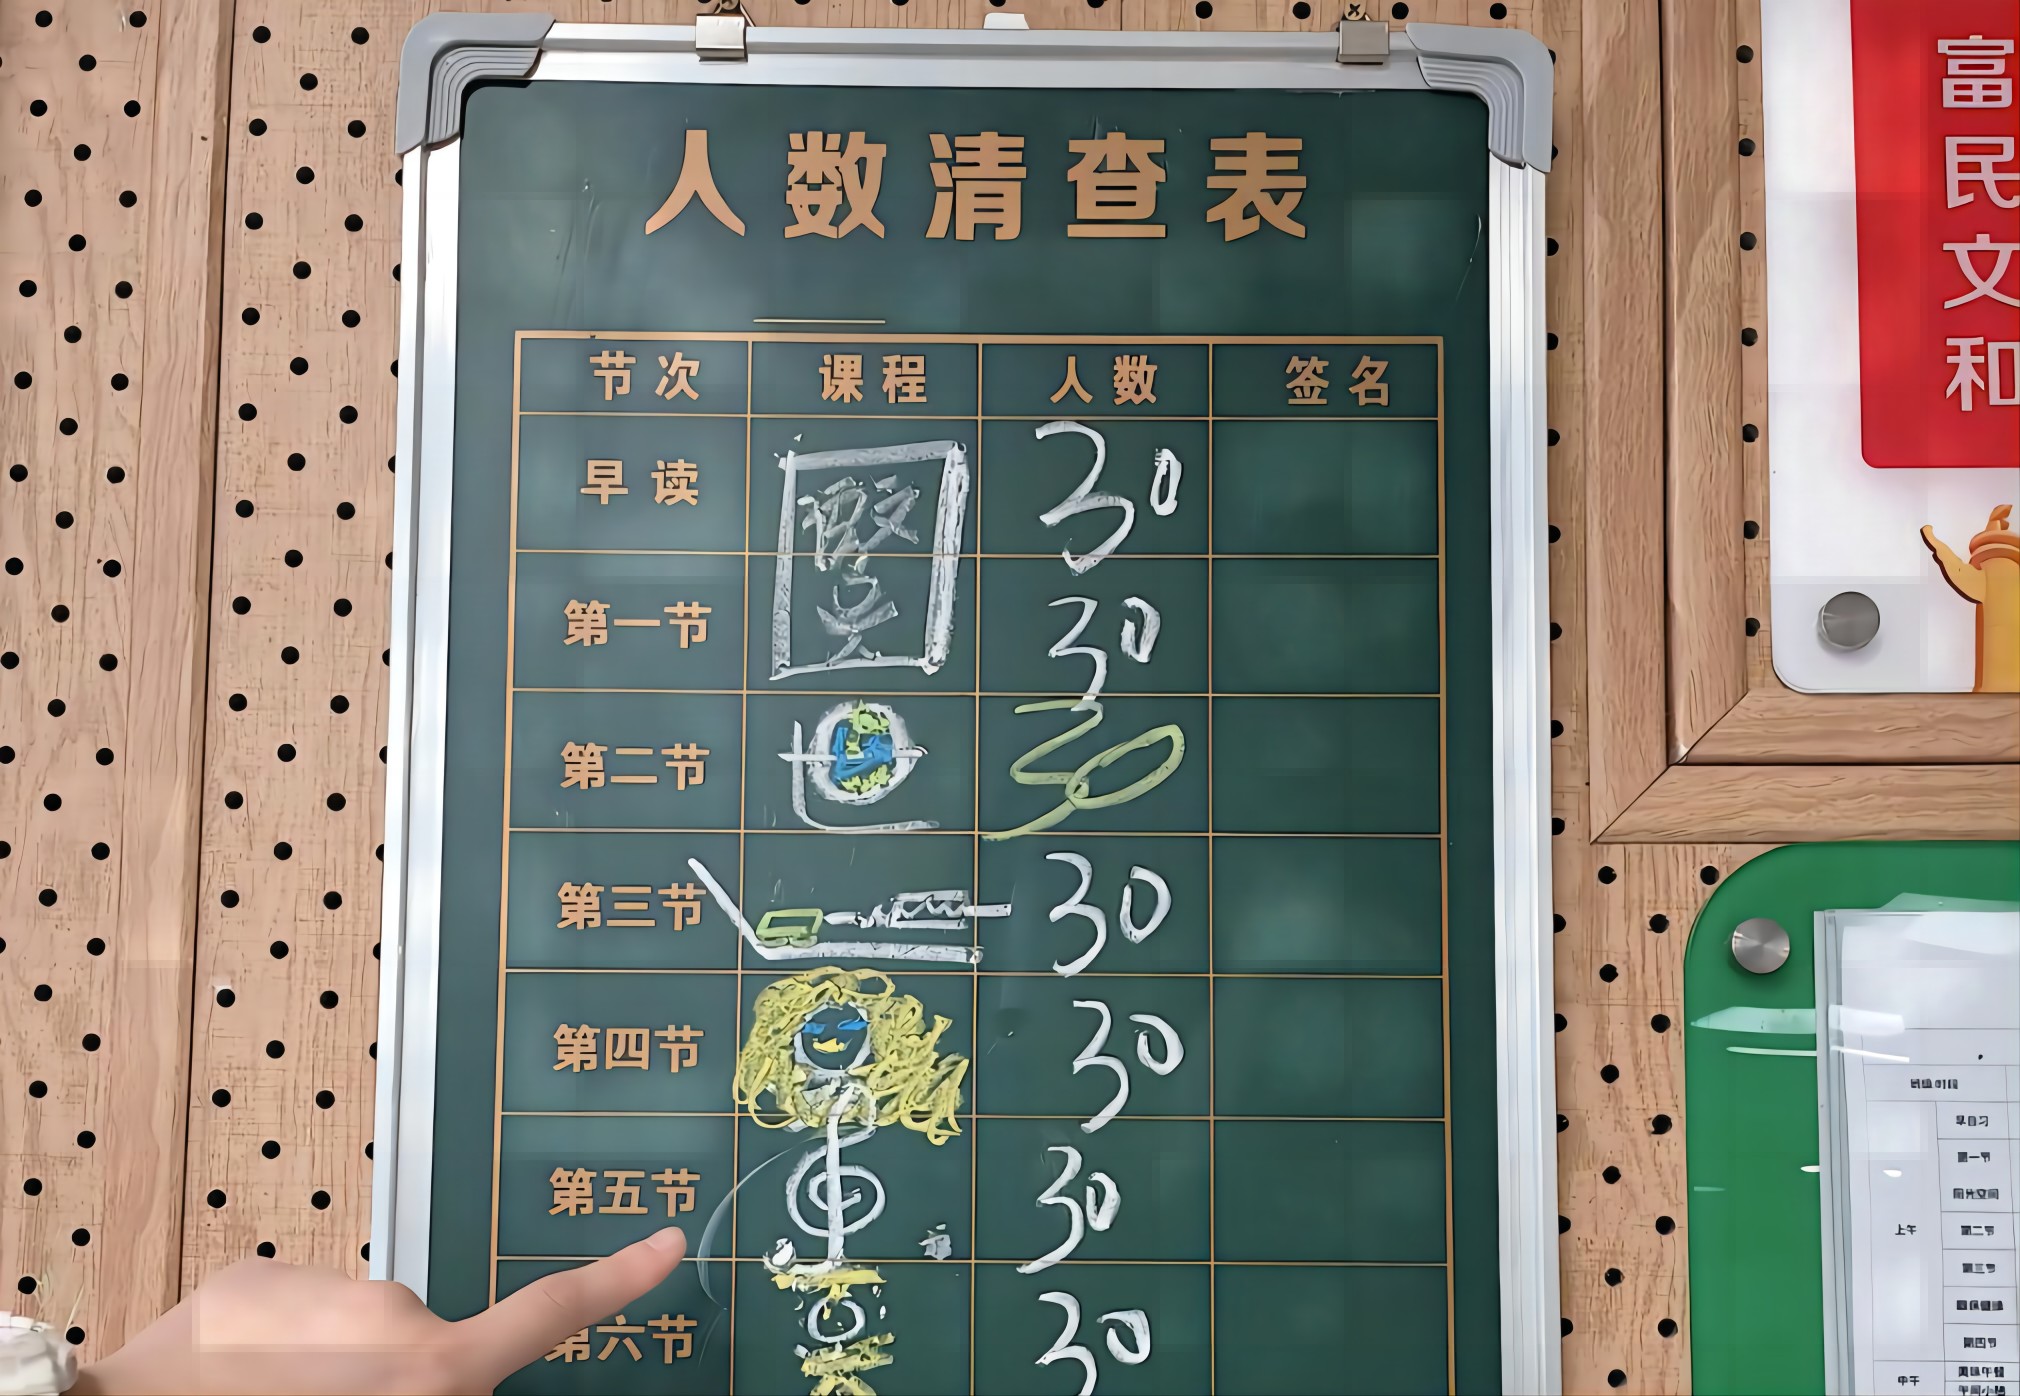 人数清查表
节次 课程 人数 签名
早读 30
第一节 30
第二节 30
第三节 30
第四节 30
第五节 中 30
第六节 30
富民文和
早自习
第一节
阳光空间
上午
第二节
第三节
第四节
中午